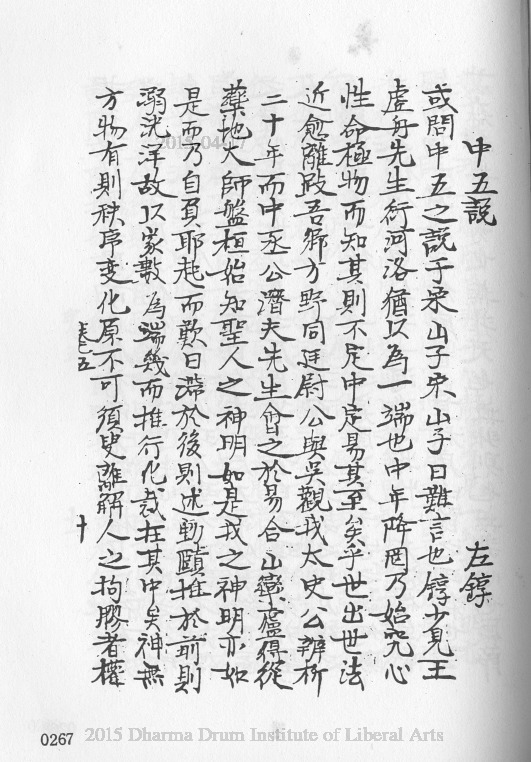 中五說 左錞
或問中五之說于宋山子宋山子曰難言也錞少見王
虛舟先生衍河洛猶以為一端也中年降罔乃始究心
性命極物而知其則不定中定易其至矣乎世出世法
近愈離跂吾鄉方野同廷尉公與吳觀我太史公辨析
二十年而中丞公潛夫先生會之於易合山欒廬得從
藥地大師盤桓始知聖人之神明如是我之神明亦如
是而乃自負耶起而歎曰滯於後則述動賾推於前則
溺洸洋故以家數為端幾而推行化裁在其中矣神無
方物有則秩序變化原不可須臾離解人之拘膠者權
卷五 十
2015-04-17
0267 2015 Dharma Drum Institute of Liberal Arts